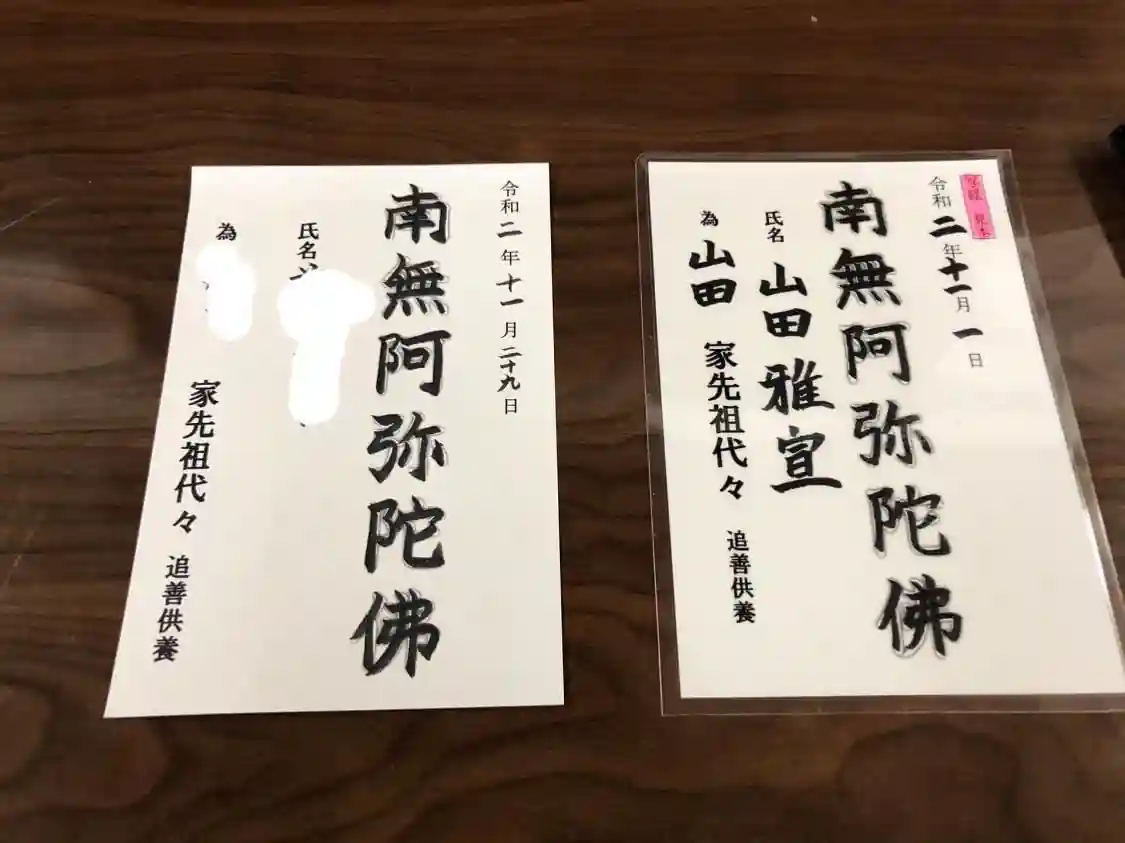 令和二年十一月二十九日
南無阿弥陀佛
氏名
為
家先祖代々 追善供養
見本
令和二年十一月一日
南無阿弥陀佛
氏名 山田雅宣
為 山田 家先祖代々 追善供養